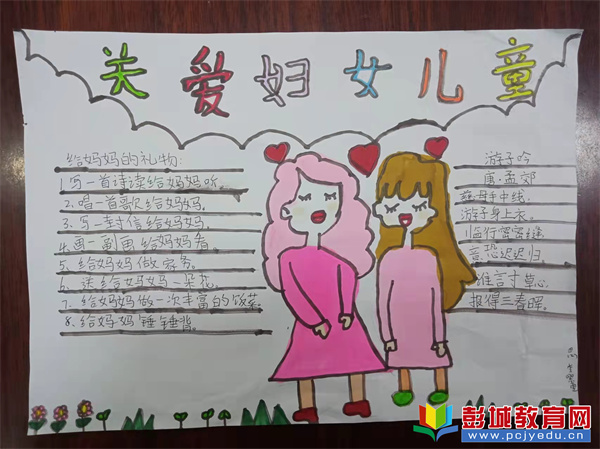 关爱妇女儿童
给妈妈的礼物:
1.写一首诗读给妈妈听。
2.唱一首歌给妈妈。
3.写一封信给妈妈。
4.画一副画给妈妈看。
5.给妈妈做家务。
6.送给妈妈一朵花。
7.给妈妈做一次丰富的饭菜
8.给妈妈锤锤背。
游子吟
唐·孟郊
慈母手中线,
游子身上衣。
临行密密缝
意恐迟迟归。
谁言寸草心,
报得三春晖。
彭城教育网
www.pcjyedu.cn